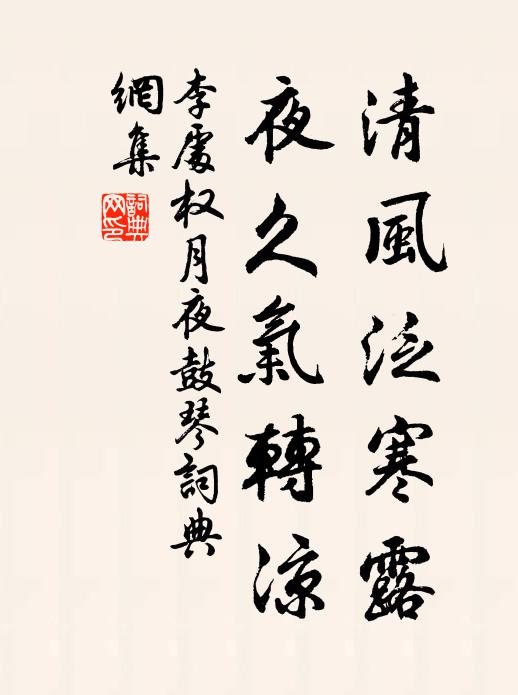 清風泛寒露
夜久氣轉涼
李處权月夜鼓琴詞典
網集
詞典网印